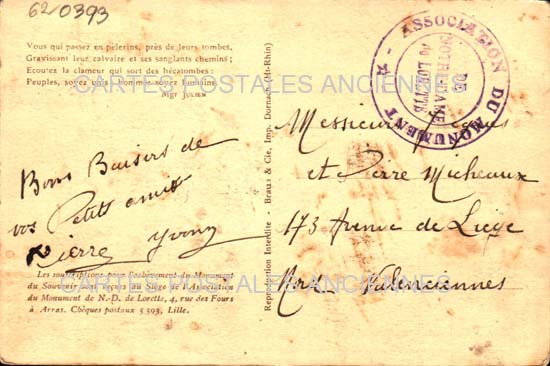 620393
Vous qui passez en pèlerins, près de leurs tombes,
Gravissant leur calvaire et ses sanglants chemins ;
Ecoutez la clameur qui sort des hécatombes :
Peuples, soyez unis, hommes soyez humains.
Mgr JULIEN
ASSOCIATION DU MONUMENT
DE
NOTRE-DAME
DE LORETTE
CARTES POSTALES ANCIENNES
Bons Baisers de
vos Petits amis
Pierre Yvony
Les souscriptions pour l'achèvement du Monument
du Souvenir au Siège de l'Association
du Monument de N.-D. de Lorette, 4, rue des Fours
à Arras. Chèques postaux 5 593, Lille.
CARTES POSTALES ANCIENNES
Reproduction Interdite - Braun & Cie, Imp. Dornach (Ht-Rhin)
Messieurs
et Pierre Micheaux
173 Avenue de Liège
Valenciennes